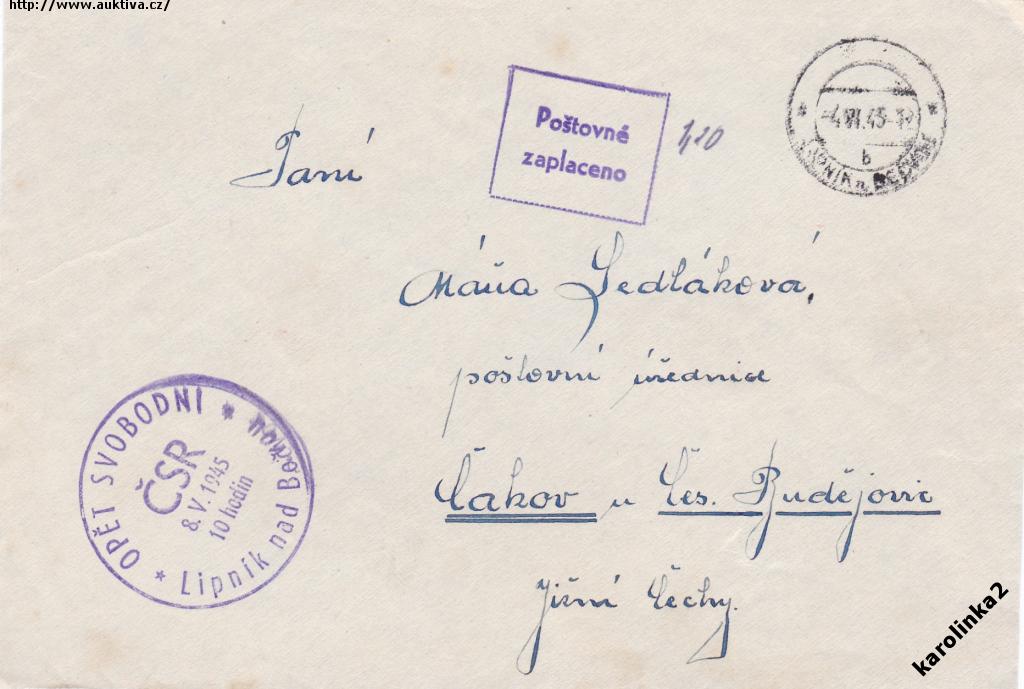 http://www.auktiva.cz/
Poštovné
zaplaceno
1,20
-4.VI.45-12
b
LIPNÍK n. BEČVOU
Paní
Máňa Sedláková,
poštovní úřednice
Čakov u Čes. Budějovic
Jižní Čechy.
OPĚT SVOBODNI
ČSR
8.V.1945
10 hodin
* Lipník nad Bečvou *
karolinka2